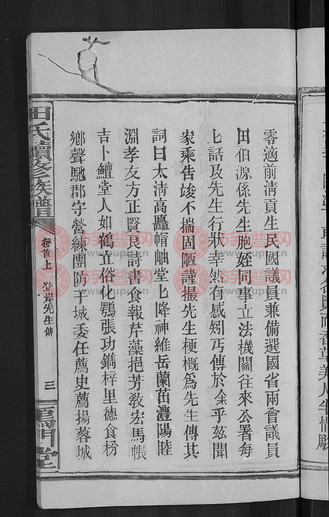 零適前清貢生民國議員兼備選國省兩會議員
田伯源係先生胞姪同事立法機關往來公署每
七話及先生行狀幸然有感矧丏傳於余乎茲聞
家乘告竣不揣固陋謹撮先生梗概爲先生傳其
詞曰太清高靐幬岫堂七降神維岳蘭苗澧陽睦
淵孝友方正賢良詩書食報芹藻挹芳敎宏馬帳
吉卜鱣堂人如鶴立俗化鴞張功鐫梓里德食枌
鄉聲馳郡守營練團防干城委任薦史薦揚蓉城
田氏續修族譜
卷首上
登岸先生傳
三